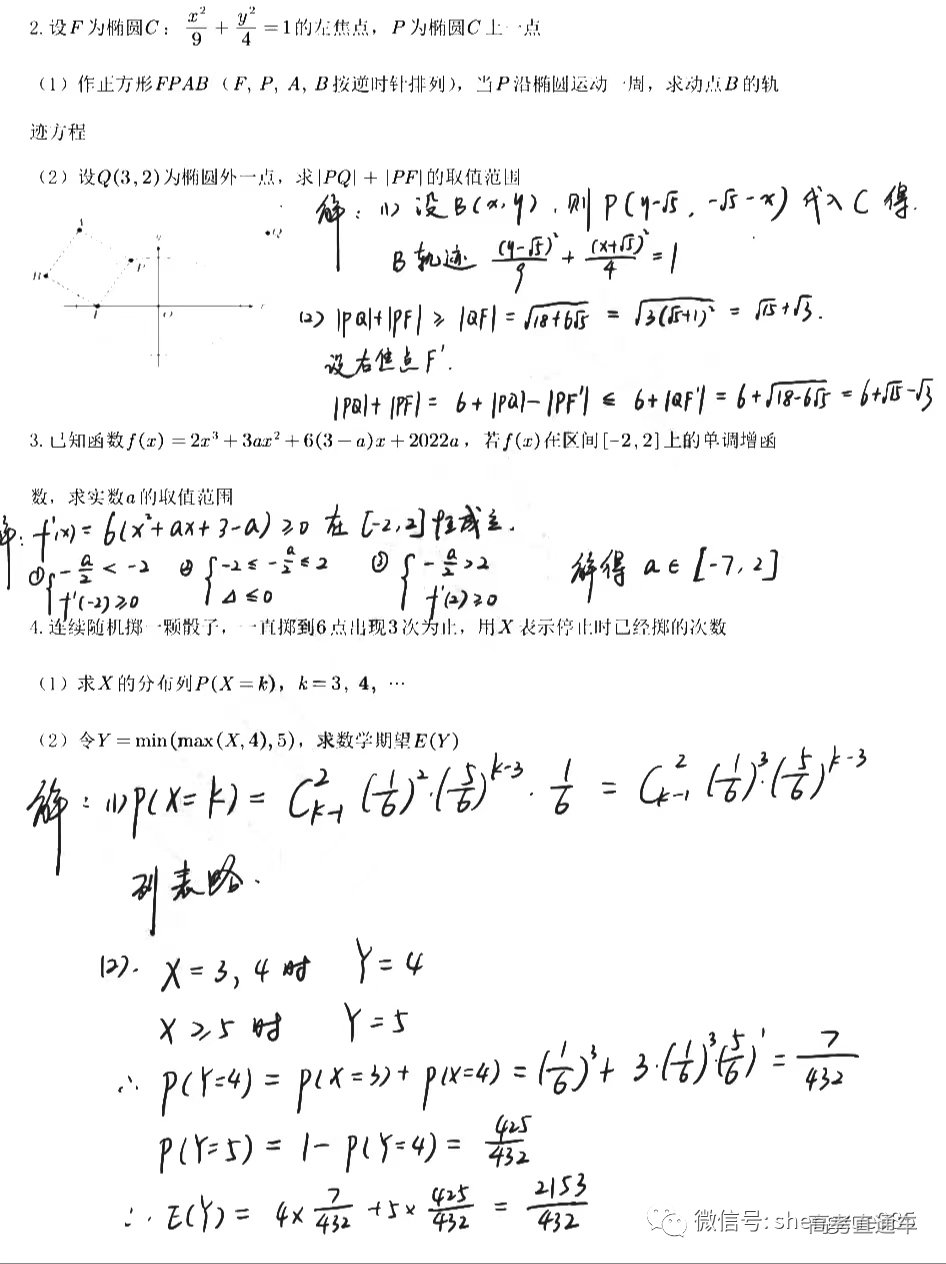 2. 设F为椭圆C： x²/9 + y²/4 = 1的左焦点，P为椭圆C上一点
（1）作正方形FPAB（F, P, A, B按逆时针排列），当P沿椭圆运动一周，求动点B的轨
迹方程
（2）设Q(3,2)为椭圆外一点，求|PQ| + |PF|的取值范围
解：(1) 设B(x,y)，则P(y-√5, -√5-x) 代入C得.
B轨迹 (y-√5)²/9 + (x+√5)²/4 = 1
(2) |PQ|+|PF| ≥ |QF| = √(18+6√5) = √(3(√5+1)²) = √15+√3.
设右焦点F'.
|PQ|+|PF| = 6+|PQ|-|PF'| ≤ 6+|QF'| = 6+√(18-6√5) = 6+√15-√3
3. 已知函数f(x) = 2x³ + 3ax² + 6(3 − a)x + 2022a，若f(x)在区间[−2, 2]上的单调增函
数，求实数a的取值范围
解：f'(x) = 6(x²+ax+3-a) ≥ 0 在[-2,2]恒成立.
① { -a/2 < -2 ② { -2 ≤ -a/2 ≤ 2 ③ { -a/2 > 2 解得 a∈[-7,2]
f'(-2) ≥ 0 Δ ≤ 0 f'(2) ≥ 0
4. 连续随机掷一颗骰子，一直掷到6点出现3次为止，用X表示停止时已经掷的次数
（1）求X的分布列P(X = k)，k = 3, 4, ⋯
（2）令Y = min(max(X, 4), 5)，求数学期望E(Y)
解：(1) P(X=k) = C²ₖ₋₁ (1/6)²·(5/6)^(k-3)·1/6 = C²ₖ₋₁ (1/6)³·(5/6)^(k-3)
列表略.
(2). X = 3, 4 时 Y = 4
X ≥ 5 时 Y = 5
∴ P(Y=4) = P(X=3) + P(X=4) = (1/6)³ + 3·(1/6)³·(5/6)¹ = 7/432
P(Y=5) = 1 - P(Y=4) = 425/432
∴ E(Y) = 4×7/432 + 5×425/432 = 2153/432
微信号:
高考直通车